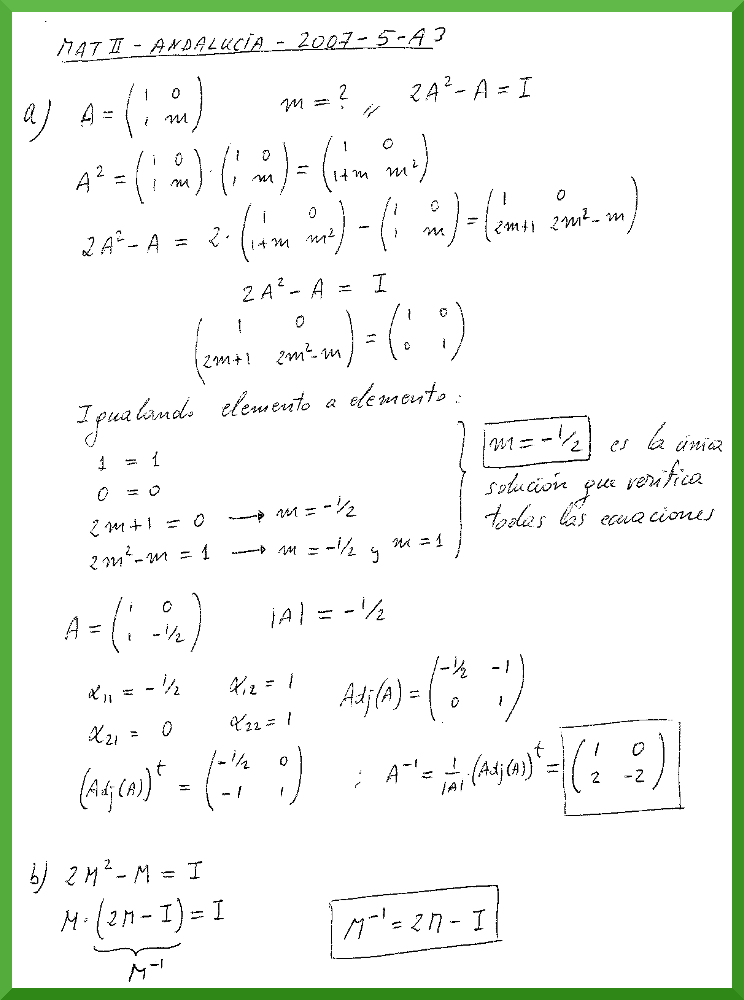 MAT II - ANDALUCÍA - 2007-5-A3
a) A = (1 0 / 1 m)   m = ? //   2A² - A = I
A² = (1 0 / 1 m) · (1 0 / 1 m) = (1 0 / 1+m m²)
2A² - A = 2 · (1 0 / 1+m m²) - (1 0 / 1 m) = (1 0 / 2m+1 2m²-m)
2A² - A = I
(1 0 / 2m+1 2m²-m) = (1 0 / 0 1)
Igualando elemento a elemento:
1 = 1
0 = 0
2m+1 = 0 → m = -1/2
2m²-m = 1 → m = -1/2 y m = 1
m = -1/2 es la única
solución que verifica
todas las ecuaciones
A = (1 0 / 1 -1/2)   |A| = -1/2
α₁₁ = -1/2   α₁₂ = 1
α₂₁ = 0   α₂₂ = 1
Adj(A) = (-1/2 -1 / 0 1)
(Adj(A))ᵗ = (-1/2 0 / -1 1) ; A⁻¹ = 1/|A| · (Adj(A))ᵗ = (1 0 / 2 -2)
b) 2M² - M = I
M · (2M - I) = I
M⁻¹
M⁻¹ = 2M - I